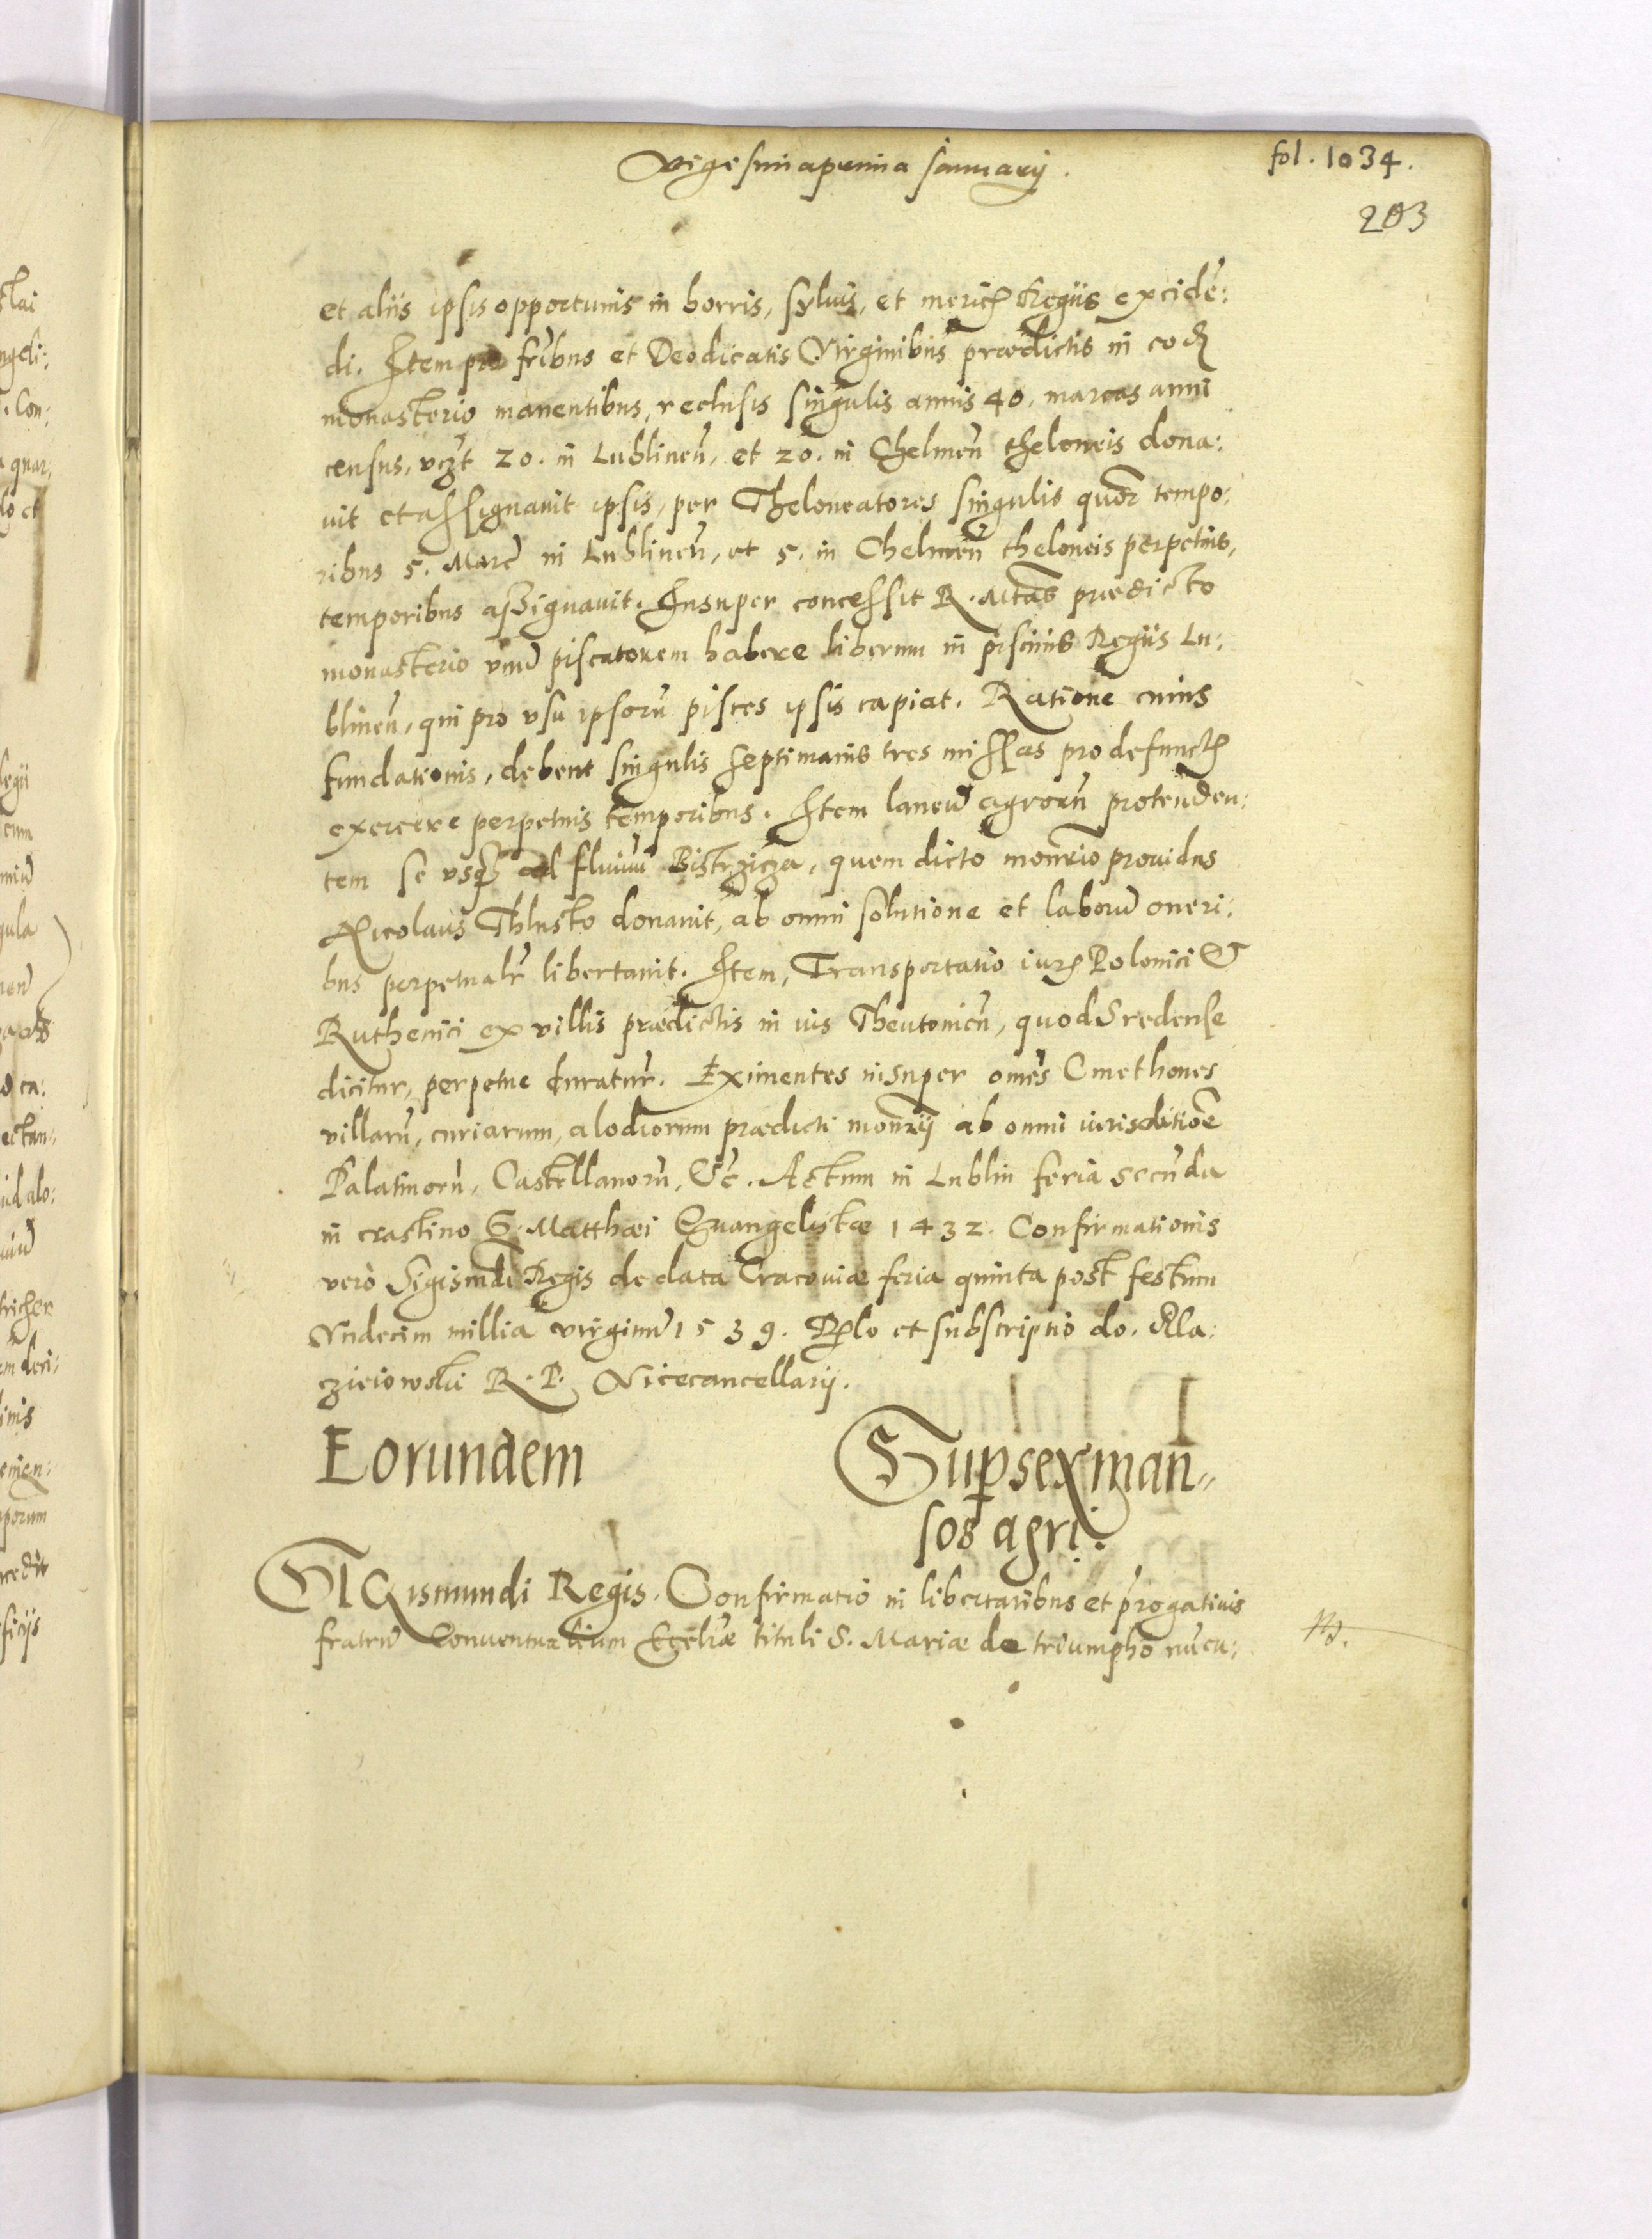 Vigesimaprima Januarij.
fol. 1034.
203
et aliis ipsis opportunis in borris, syluis, et mericis Regiis exciden:
di. Item pro fribus et Deodicatis Virginibus prædictis in eod
monasterio manentibus, reclusis singulis annis 40. marcas annui
census, vczt 20. in Lublinen, et 20. in Chelmen theloneis dona:
uit et assignauit ipsis, per Theloneatores singulis quor tempo:
ribus 5. Marc in Lublinen, et 5. in Chelmen theloneis perpetuis,
temporibus assignauit. Insuper concessit R. Mtas prædicto
monasterio vnu piscatorem habere liberum in piscinis Regiis Lu:
blinen, qui pro vsu ipsoru pisces ipsis capiat. Ratione cuius
fundationis, debent singulis septimanis tres missas pro defunctis
exercere perpetuis temporibus. Item laneu agroru protenden:
tem se vsq ad fluuiu Bistrzicza, quem dicto monrio prouidus
Nicolaus Thlusto donauit, ab omni solutione et laboru oneri:
bus perpetualr libertauit. Item, Transportatio iuris Polonici &
Ruthenici ex villis prædictis in ius Theutonicu, quod Sredense
dicitur, perpetue duratur. Eximentes insuper omes Cmethones
villaru, curiarum, alodiorum prædicti monrij ab omni iurisditioe
Palatinoru, Castellanoru, &c. Actum in Lublin feria secuda
in crastino S. Matthæi Euangelistæ 1432. Confirmationis
verò Sigismdi Regis de data Cracouiæ feria quinta post festum
Vndecim millia virginu 1539. Rlo et subscriptio do. Ma:
czieiowski R. P. Vicecancellarij.
Eorundem
Sup sex man,,
sos agri.
SIGismundi Regis. Confirmatio in libertatibus et progatiuis
fratru Conuentualium Eccliæ tituli S. Mariæ de triumpho nucu: